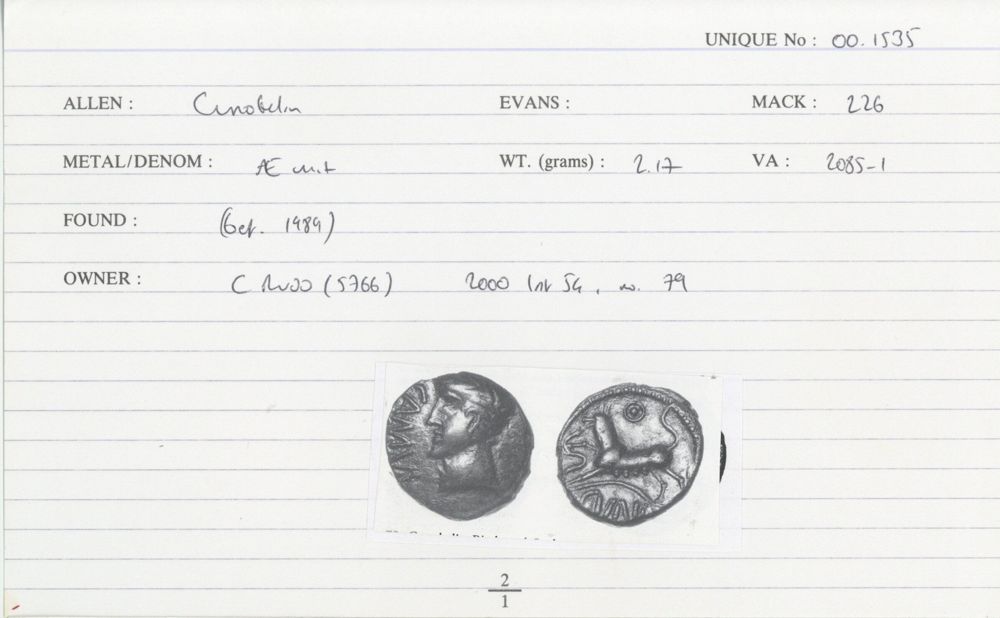 UNIQUE No : 00.1535
ALLEN : Cunobelin EVANS : MACK : 226
METAL/DENOM : Æ unit WT. (grams) : 2.17 VA : 2085-1
FOUND : (bef. 1989)
OWNER : C Rudd (5766) 2000 list 54, no. 79
2
1